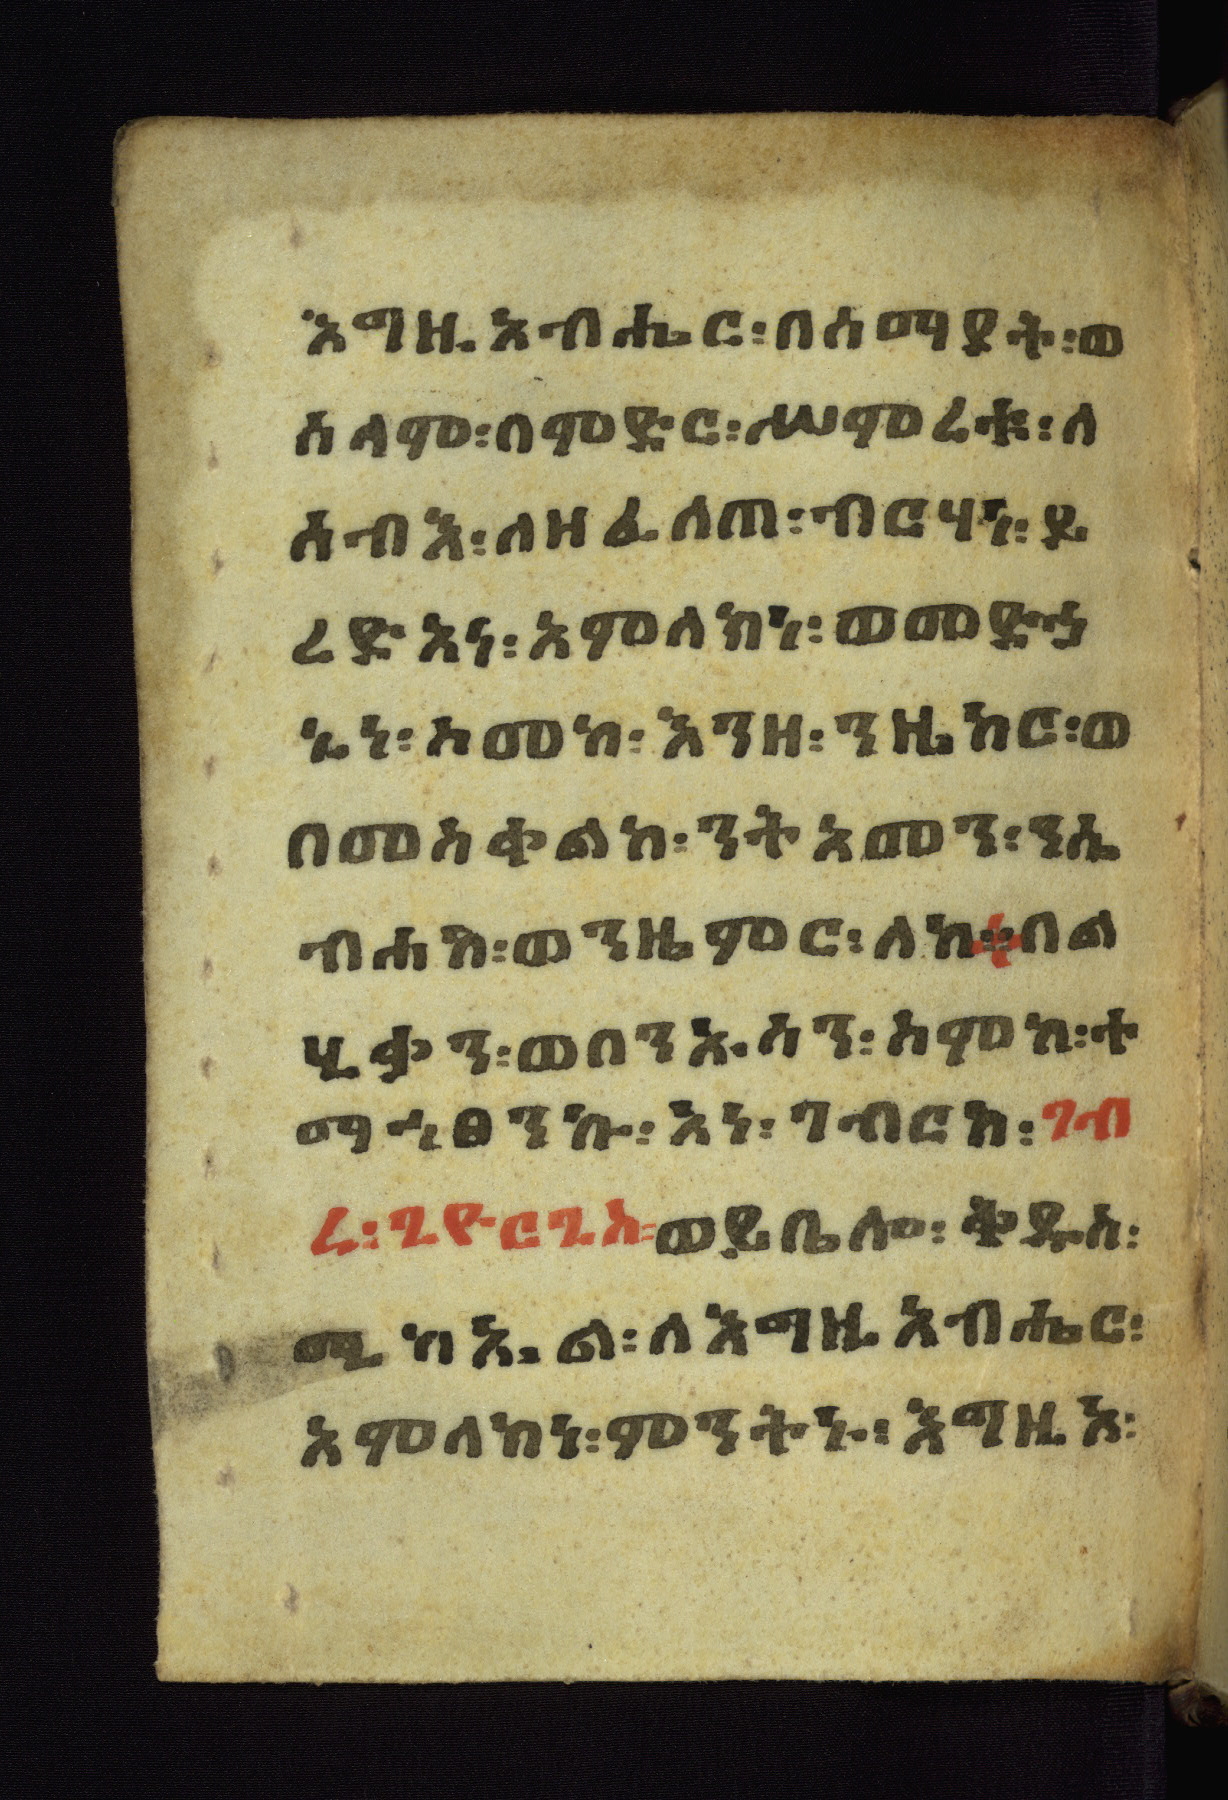 እግዚአብሔር፡በሰማያት፡ወ
ሰላም፡በምድር፡ሥምረቱ፡ለ
ሰብእ፡ለዘፈለጠ፡ብርሃነ፡ይ
ረድአነ፡አምላክነ፡ወመድኃ
ኒነ፡ስመከ፡እንዘ፡ንዜከር፡ወ
በመስቀልከ፡ንትአመን፡ንሴ
ብሐከ፡ወንዜምር፡ለከ፡በል
ሂቃን፡ወበንኡሳን፡ስምከ፡ተ
ማኅፀንኩ፡አነ፡ገብርከ፡ገብ
ረ፡ጊዮርጊስ፡ወይቤሎ፡ቅዱስ፡
ሚካኤል፡ለእግዚአብሔር፡
አምላክነ፡ምንትኑ፡እግዚአ፡